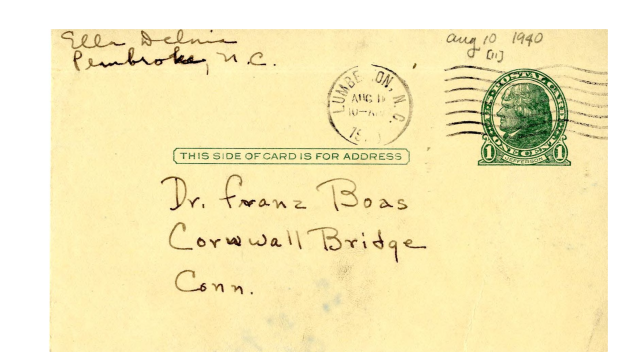 Ella Deloria
Pembroke, N.C.
Aug 10 1940
[11]
LUMBERTON, N.C.
AUG 1
10-AM
U.S. POSTAL CARD
JEFFERSON
1 ONE CENT 1
THIS SIDE OF CARD IS FOR ADDRESS
Dr. Franz Boas
Cornwall Bridge
Conn.